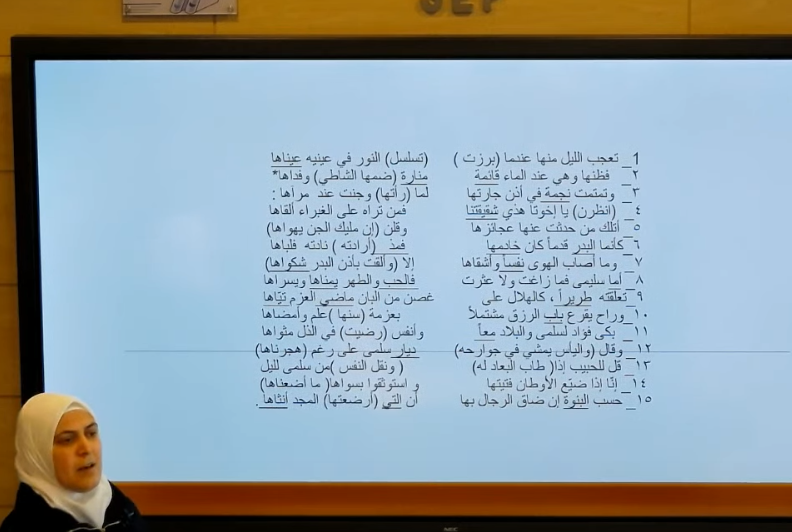 GEP
1_ تعجب الليل منها عندما (برزت ) (تسلسل) النور في عينيه عيناها
٢_ فظنها وهي عند الماء قائمة منارة (ضمها الشاطي) وفداها*
٣_ وتمتمت نجمة في أذن جارتها لما (رأتها) وجنت عند مرآها :
٤_ (انظرن) يا إخوتا هذي شقيقتنا فمن تراه على الغبراء ألقاها
٥_ أتلك من حدثت عنها عجائزها وقلن (إن مليك الجن يهواها)
٦_ كأنما البدر قدماً كان خادمها فمذ (أرادته ) نادته فلباها
٧_ وما أصاب الهوى نفساً وأشقاها إلا (وألقت بأذن البدر شكواها)
٨_ أما سليمى فما زاغت ولا عثرت فالحب والطهر يمناها ويسراها
٩_ تعلقته طريراً ، كالهلال على غصن من البان ماضي العزم تيّاها
١٠_ وراح يقرع باب الرزق مشتملاً بعزمة (سنها )علّم وأمضاها
١١_ بكى فؤاد لسلمى والبلاد معاً وأنفس (رضيت) في الذل مثواها
١٢_ وقال (واليأس يمشي في جوارحه) ديار سلمى على رغم (هجرناها)
١٣_ قل للحبيب إذا( طاب البعاد له) ( ونقل النفس )من سلمى لليل
١٤_ إنّا إذا ضيّع الأوطان فتيتها و استوثقوا بسواها( ما أضعناها)
١٥_ حسب البنوة إن ضاق الرجال بها أن التي (أرضعتها) المجد أنثاها.
NEC